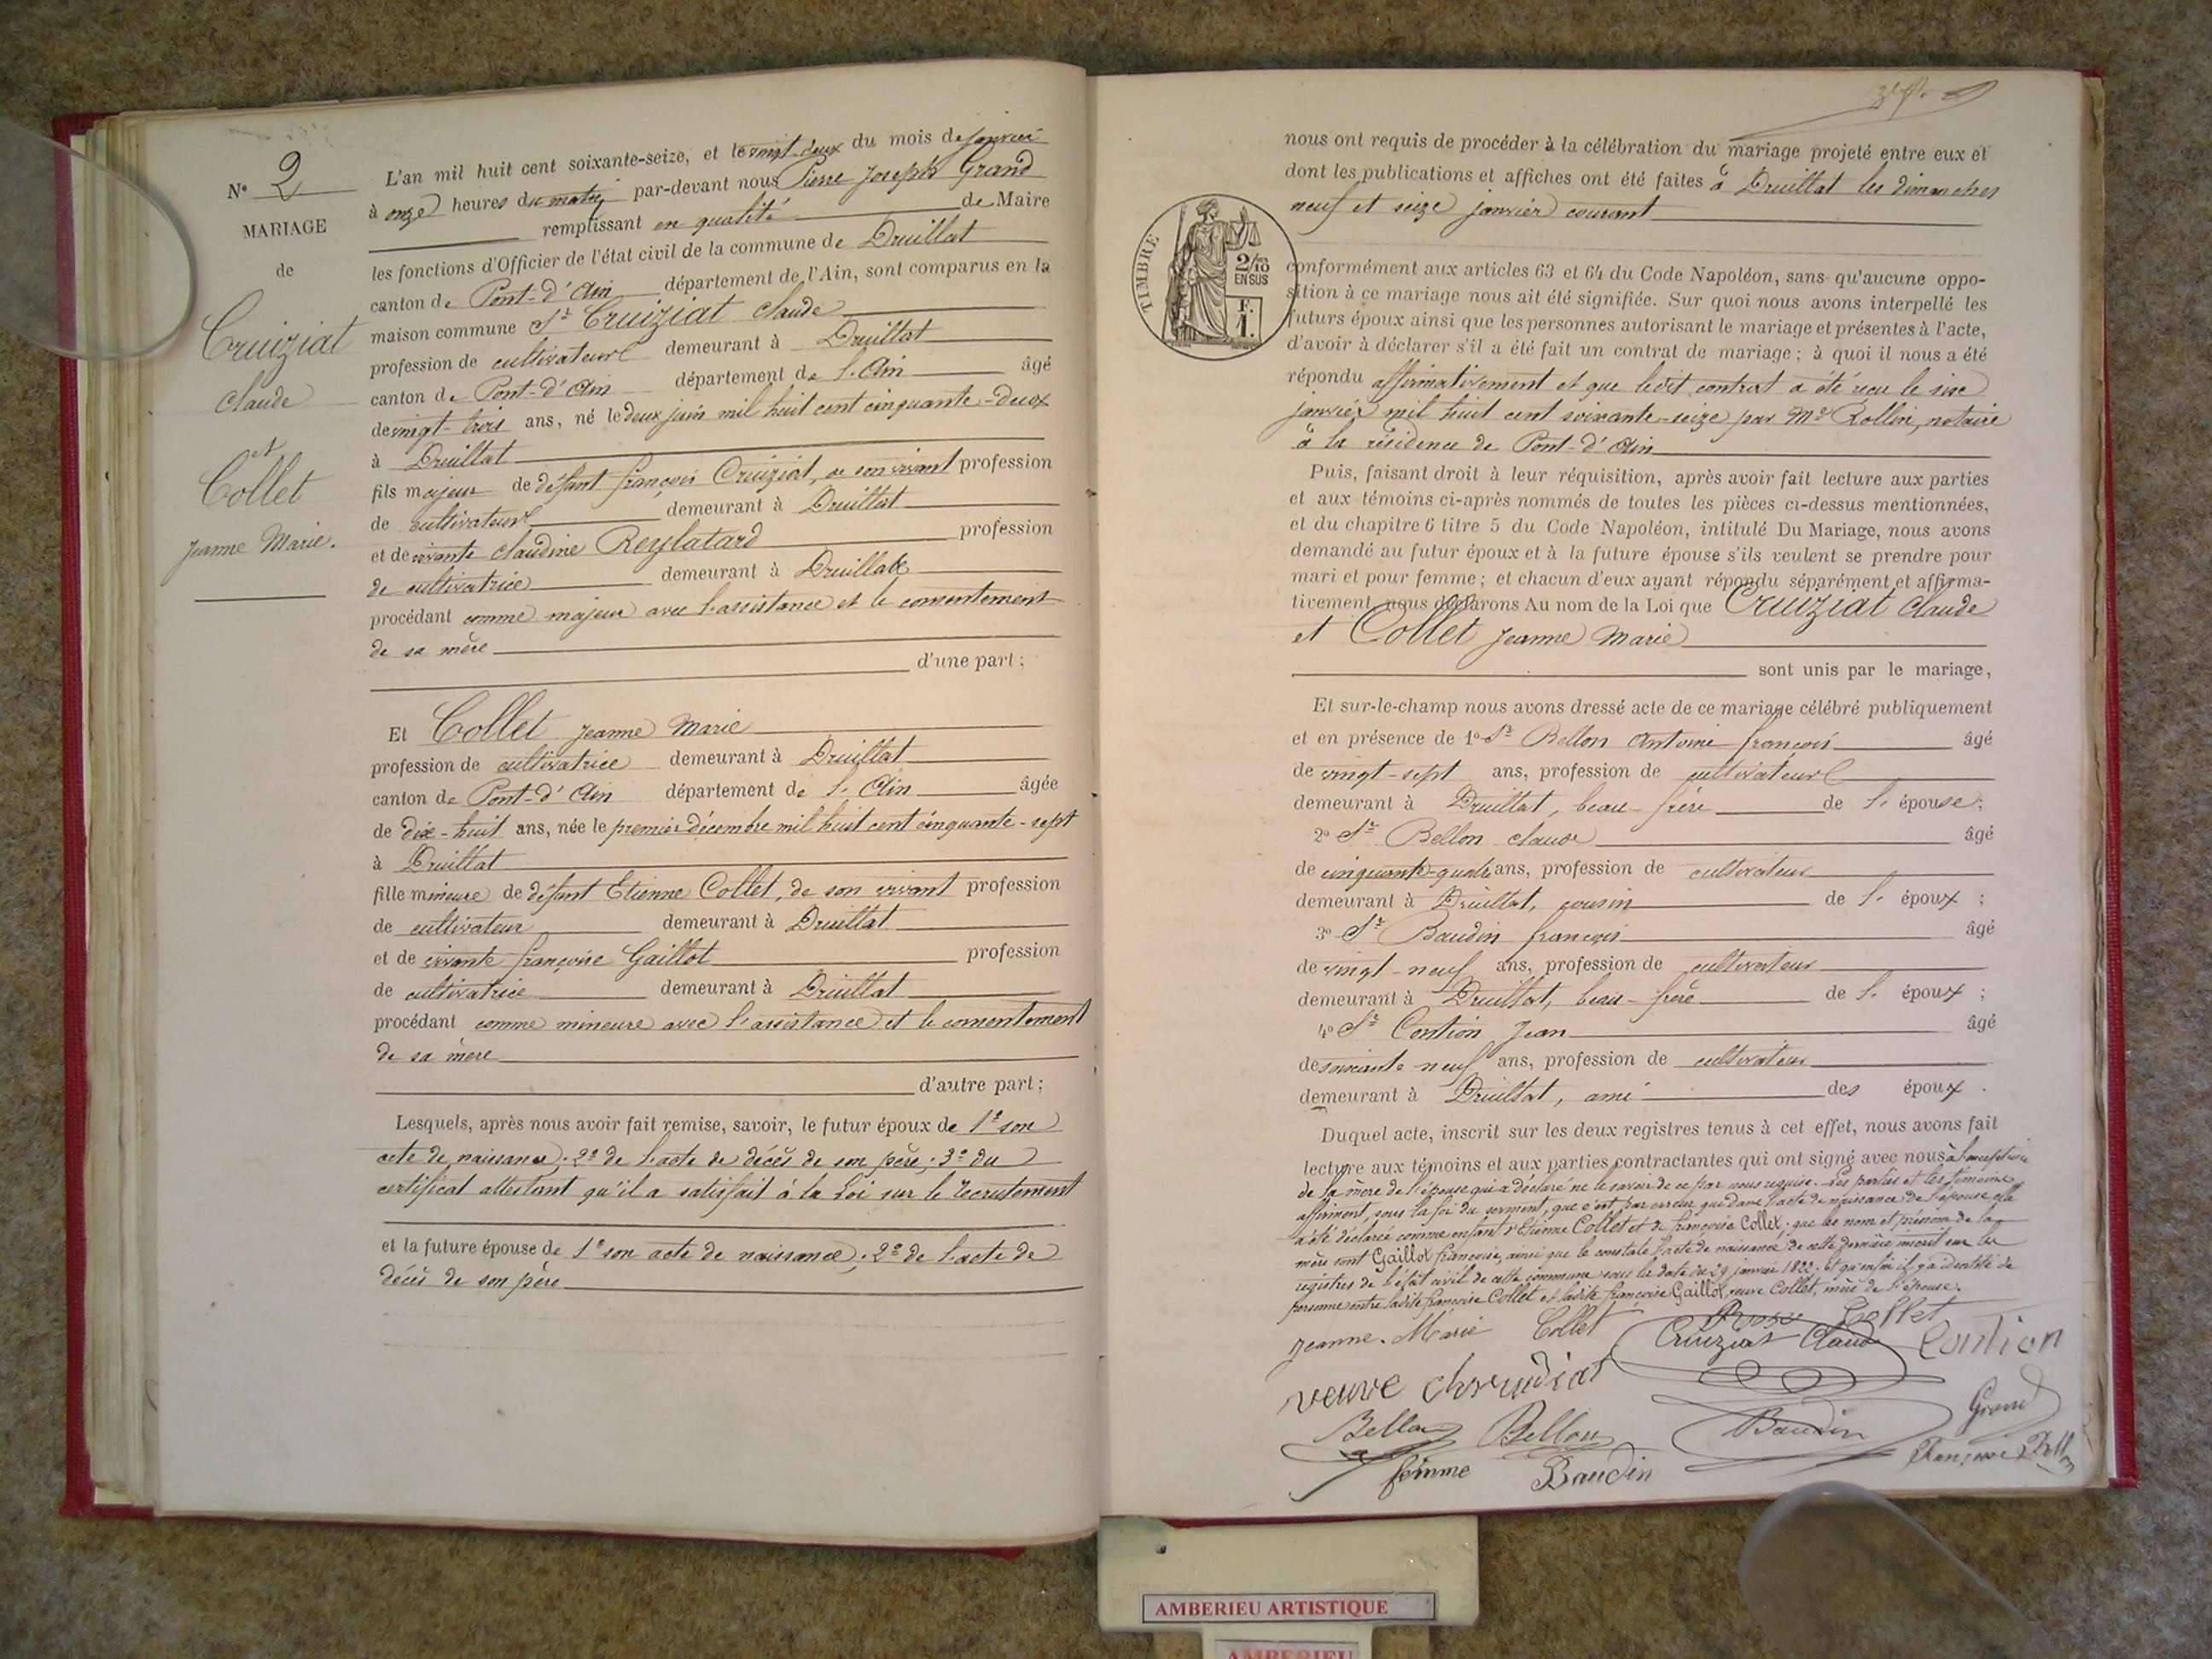 N° 2
MARIAGE
de
Cruiziat
Claude
et
Collet
Jeanne Marie.
L'an mil huit cent soixante-seize, et le vingt-deux du mois de janvier
à onze heures du matin par-devant nous Pierre Joseph Grand
remplissant en qualité de Maire
les fonctions d'Officier de l'état civil de la commune de Druillat
canton de Pont-d'Ain département de l'Ain, sont comparus en la
maison commune Sr Cruiziat Claude
profession de cultivateur demeurant à Druillat
canton de Pont-d'Ain département de l'Ain âgé
de vingt-trois ans, né le deux juin mil huit cent cinquante-deux
à Druillat
fils majeur de défunt françois Cruiziat, de son vivant profession
de cultivateur demeurant à Druillat
et de vivante claudine Reylatard profession
de cultivatrice demeurant à Druillat
procédant comme majeur avec l'assistance et le consentement
de sa mère
d'une part;
Et Collet Jeanne Marie
profession de cultivatrice demeurant à Druillat
canton de Pont-d'Ain département de l'Ain âgée
de dix-huit ans, née le premier décembre mil huit cent cinquante-sept
à Druillat
fille mineure de défunt Etienne Collet, de son vivant profession
de cultivateur demeurant à Druillat
et de vivante françoise Gaillot profession
de cultivatrice demeurant à Druillat
procédant comme mineure avec l'assistance et le consentement
de sa mère
d'autre part;
Lesquels, après nous avoir fait remise, savoir, le futur époux de 1° son
acte de naissance; 2° de l'acte de décès de son père; 3° du
certificat attestant qu'il a satisfait à la Loi sur le recrutement
et la future épouse de 1° son acte de naissance; 2° de l'acte de
décès de son père
nous ont requis de procéder à la célébration du mariage projeté entre eux et
dont les publications et affiches ont été faites à Druillat les dimanches
neuf et seize janvier courant
TIMBRE
2/10
EN SUS
F.
1.
conformément aux articles 63 et 64 du Code Napoléon, sans qu'aucune oppo-
sition à ce mariage nous ait été signifiée. Sur quoi nous avons interpellé les
futurs époux ainsi que les personnes autorisant le mariage et présentes à l'acte,
d'avoir à déclarer s'il a été fait un contrat de mariage; à quoi il nous a été
répondu affirmativement et que ledit contrat a été reçu le six
janvier mil huit cent soixante-seize par Me Rollin, notaire
à la résidence de Pont-d'Ain
Puis, faisant droit à leur réquisition, après avoir fait lecture aux parties
et aux témoins ci-après nommés de toutes les pièces ci-dessus mentionnées,
et du chapitre 6 titre 5 du Code Napoléon, intitulé Du Mariage, nous avons
demandé au futur époux et à la future épouse s'ils veulent se prendre pour
mari et pour femme; et chacun d'eux ayant répondu séparément et affirma-
tivement nous déclarons Au nom de la Loi que Cruiziat Claude
et Collet Jeanne Marie
sont unis par le mariage,
Et sur-le-champ nous avons dressé acte de ce mariage célébré publiquement
et en présence de 1° Sr Bellon Antoine françois âgé
de vingt-sept ans, profession de cultivateur
demeurant à Druillat, beau-frère de l'épouse;
2° Sr Bellon claude âgé
de cinquante-quatre ans, profession de cultivateur
demeurant à Druillat, cousin de l'époux;
3° Sr Baudin françois âgé
de vingt-neuf ans, profession de cultivateur
demeurant à Druillat, beau-frère de l'époux;
4° Sr Contion Jean âgé
de soixante-neuf ans, profession de cultivateur
demeurant à Druillat, ami des époux.
Duquel acte, inscrit sur les deux registres tenus à cet effet, nous avons fait
lecture aux témoins et aux parties contractantes qui ont signé avec nous à l'exception
de la mère de l'épouse qui a déclaré ne le savoir de ce par nous requise. Les parties et les témoins
affirment, sous la foi du serment, que c'est par erreur que dans l'acte de naissance de l'épouse elle
a été déclarée comme enfant d'Etienne Collet et de françoise Collet; que les nom et prénom de la
mère sont Gaillot françoise, ainsi que le constate l'acte de naissance de cette dernière inscrit sur les
registres de l'état civil de cette commune sous la date du 29 janvier 1822; et qu'enfin il y a identité de
personne entre ladite françoise Collet et ladite françoise Gaillot, veuve Collet, mère de l'épouse.
Jeanne-Marie Collet Rose Collet
Cruiziat Claude Contion
veuve Chrudiat
Bellon Bellon Baudin Grand
femme Baudin Françoise
AMBERIEU ARTISTIQUE
AMBERIEU